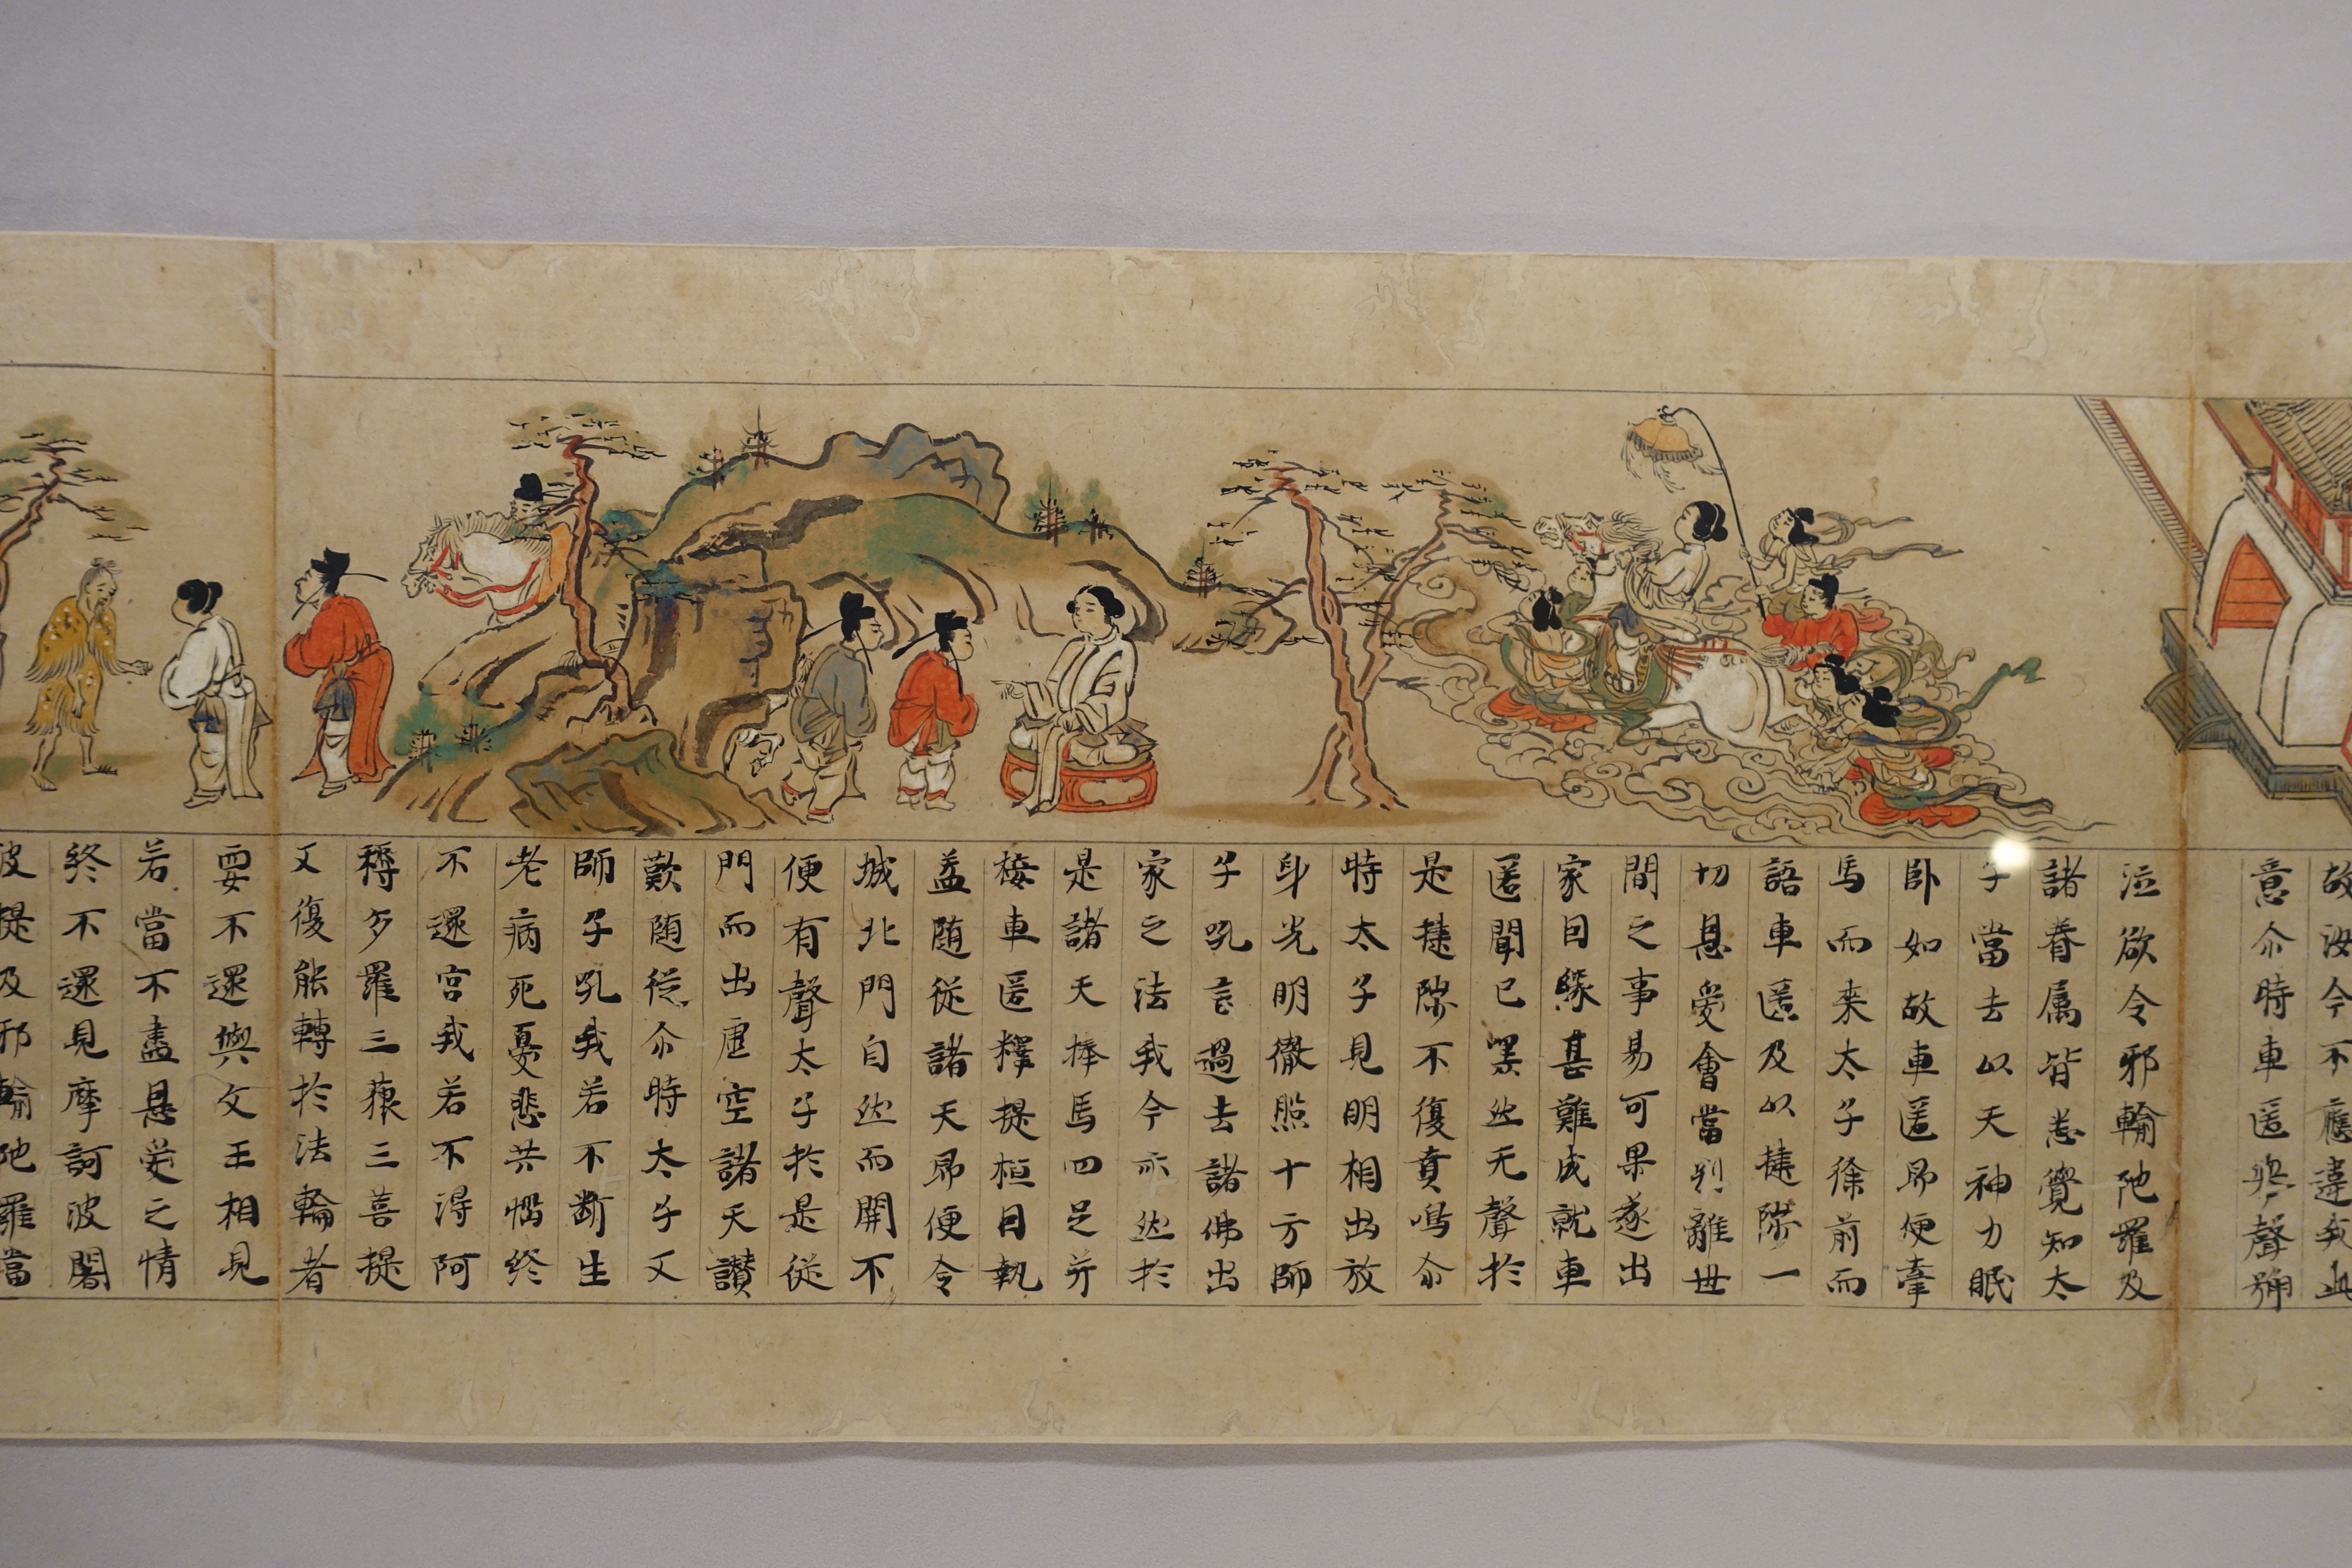 故汝今不應違我此
意尒時車匿舉聲號
泣欲令邪輸陁羅及
諸眷属皆悉覺知太
子當去以天神力眠
卧如故車匿即便牽
馬而来太子徐前而
語車匿及以揵陟一
切恩愛會當別離世
間之事易可果遂出
家因縁甚難成就車
匿聞已黙然无聲於
是揵陟不復賁鳴尒
時太子見明相出放
身光明徹照十方師
子吼言過去諸佛出
家之法我今亦然於
是諸天捧馬四足并
接車匿釋提桓因執
盖随従諸天即便令
城北門自然而開不
便有聲太子於是従
門而出虚空諸天讃
歎随従尒時太子又
師子吼我若不断生
老病死憂悲苦惱終
不還宮我若不得阿
耨多羅三藐三菩提
又復能轉於法輪者
要不還與父王相見
若當不盡恩愛之情
終不還見摩訶波闍
波提及邪輸陁羅當